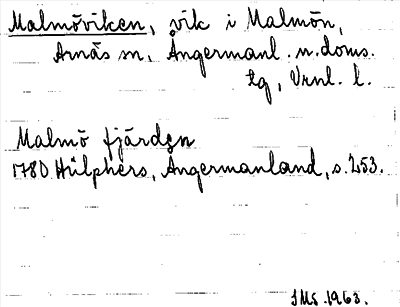 Malmöviken, vik i Malmön,
Arnäs sn, Ångermanl. n. doms.
tg, Vrnl. l.
Malmö fjärden
1780 Hülphers, Angermanland, s. 253.
IMS. 1963.